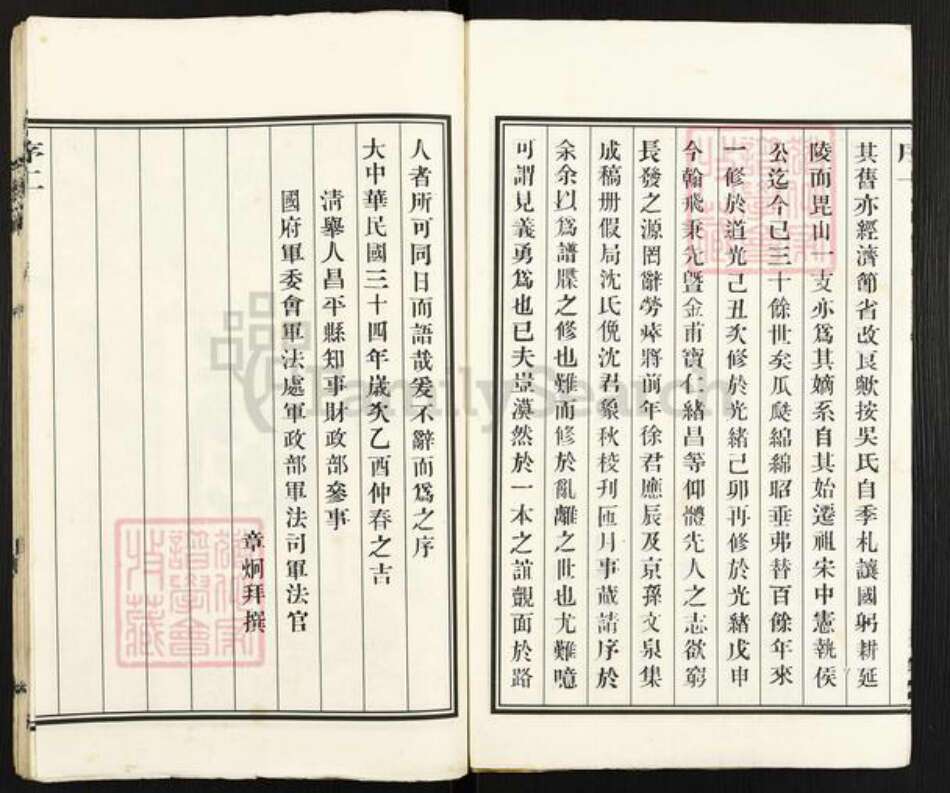 其舊亦經濟節省改良歟按吳氏自季札讓國躬耕延
陵而毘山一支亦爲其嫡系自其始遷祖宋中憲執侯
公迄今已三十餘世矣瓜瓞綿綿昭垂弗替百餘年來
一修於道光己丑次修於光緒己卯再修於光緒戊申
今翰飛秉先暨金甫寶仁緒昌等仰體先人之志欲窮
長發之源罔辭勞瘁將前年徐君應辰及京孫文泉集
成稿册假局沈氏俛沈君象秋校刋匝月事蕆請序於
余余以爲譜牒之修也難而修於亂離之世也尤難噫
可謂見義勇爲也已夫豈漠然於一本之誼覿面於路
人者所可同日而語哉爰不辭而爲之序
大中華民國三十四年歲次乙酉仲春之吉
清舉人昌平縣知事財政部參事
國府軍委會軍法處軍政部軍法司軍法官
章炯拜撰
序二
FamilySearch